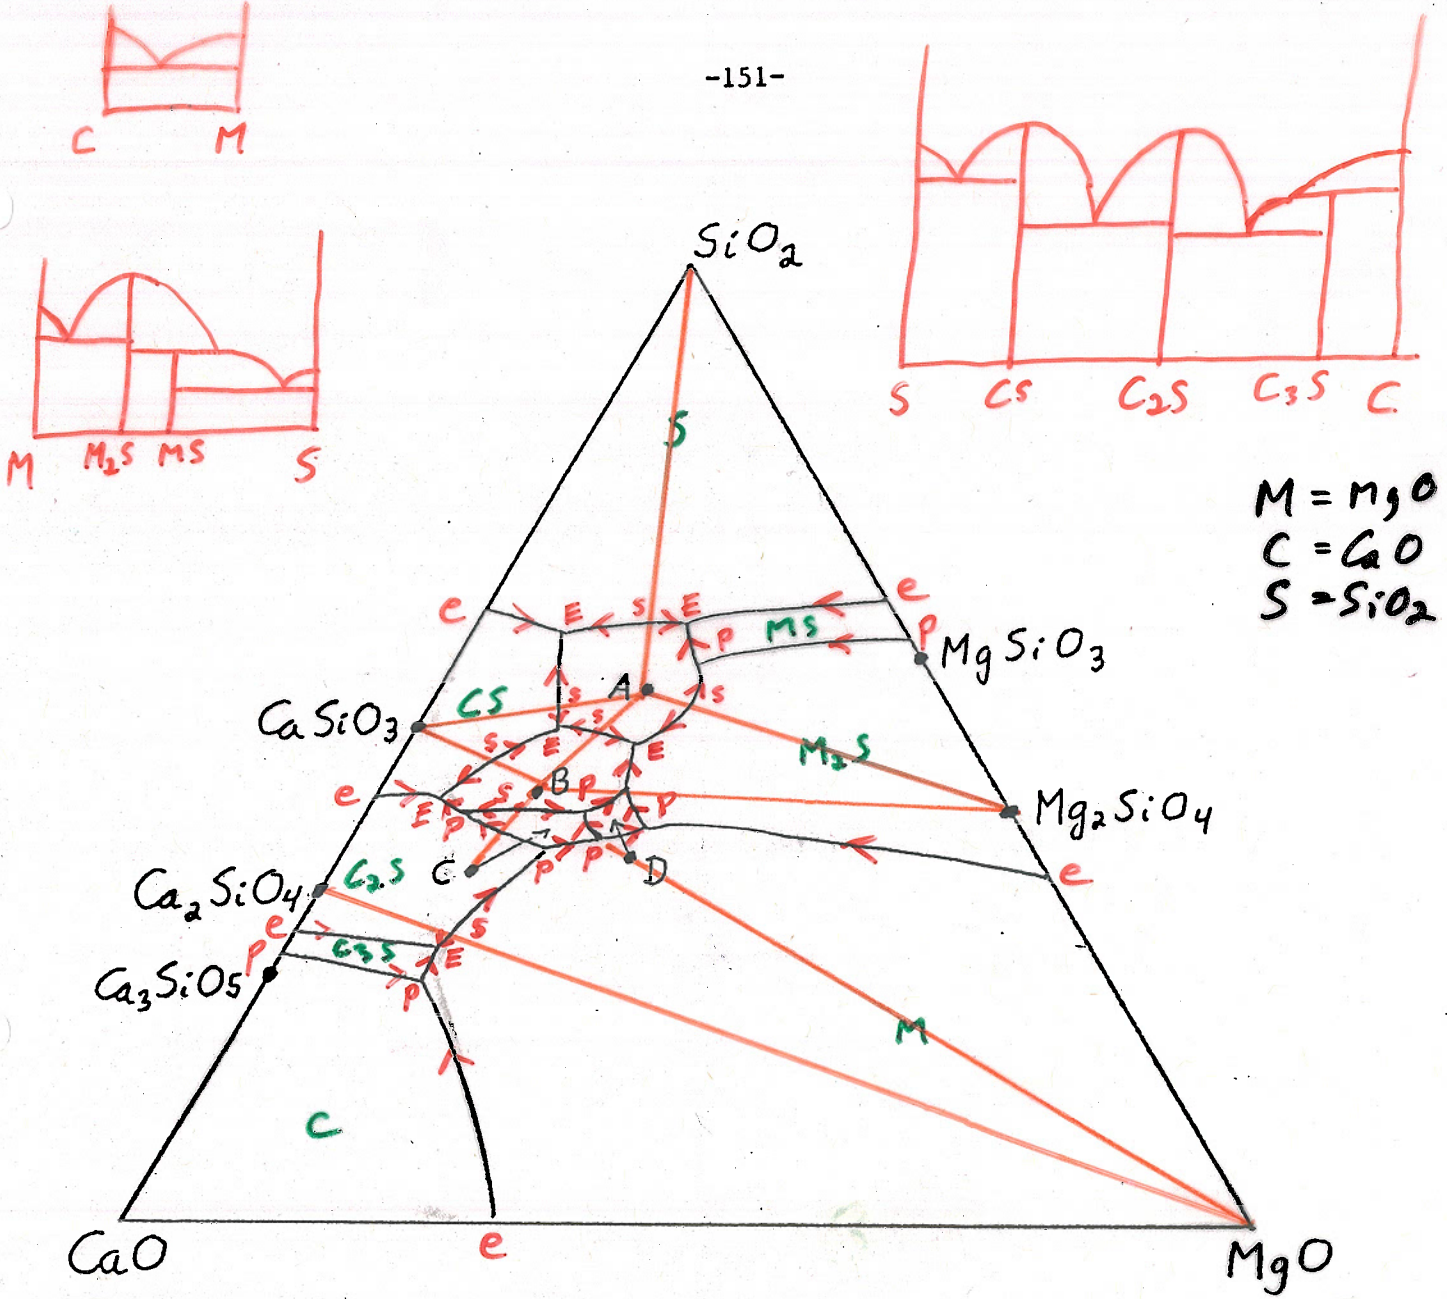 -151-
C M
M M₂S MS S
S CS C₂S C₃S C
M = MgO
C = CaO
S = SiO₂
SiO₂
S
e E s E e
MS
P P
MgSiO₃
A
CS
s s s
CaSiO₃
s E E
M₂S
B
e s P
E P P
Mg₂SiO₄
C₂S C P P D
e
Ca₂SiO₄
e
C₃S
s
E
P
Ca₃SiO₅
P
M
C
CaO
e
MgO